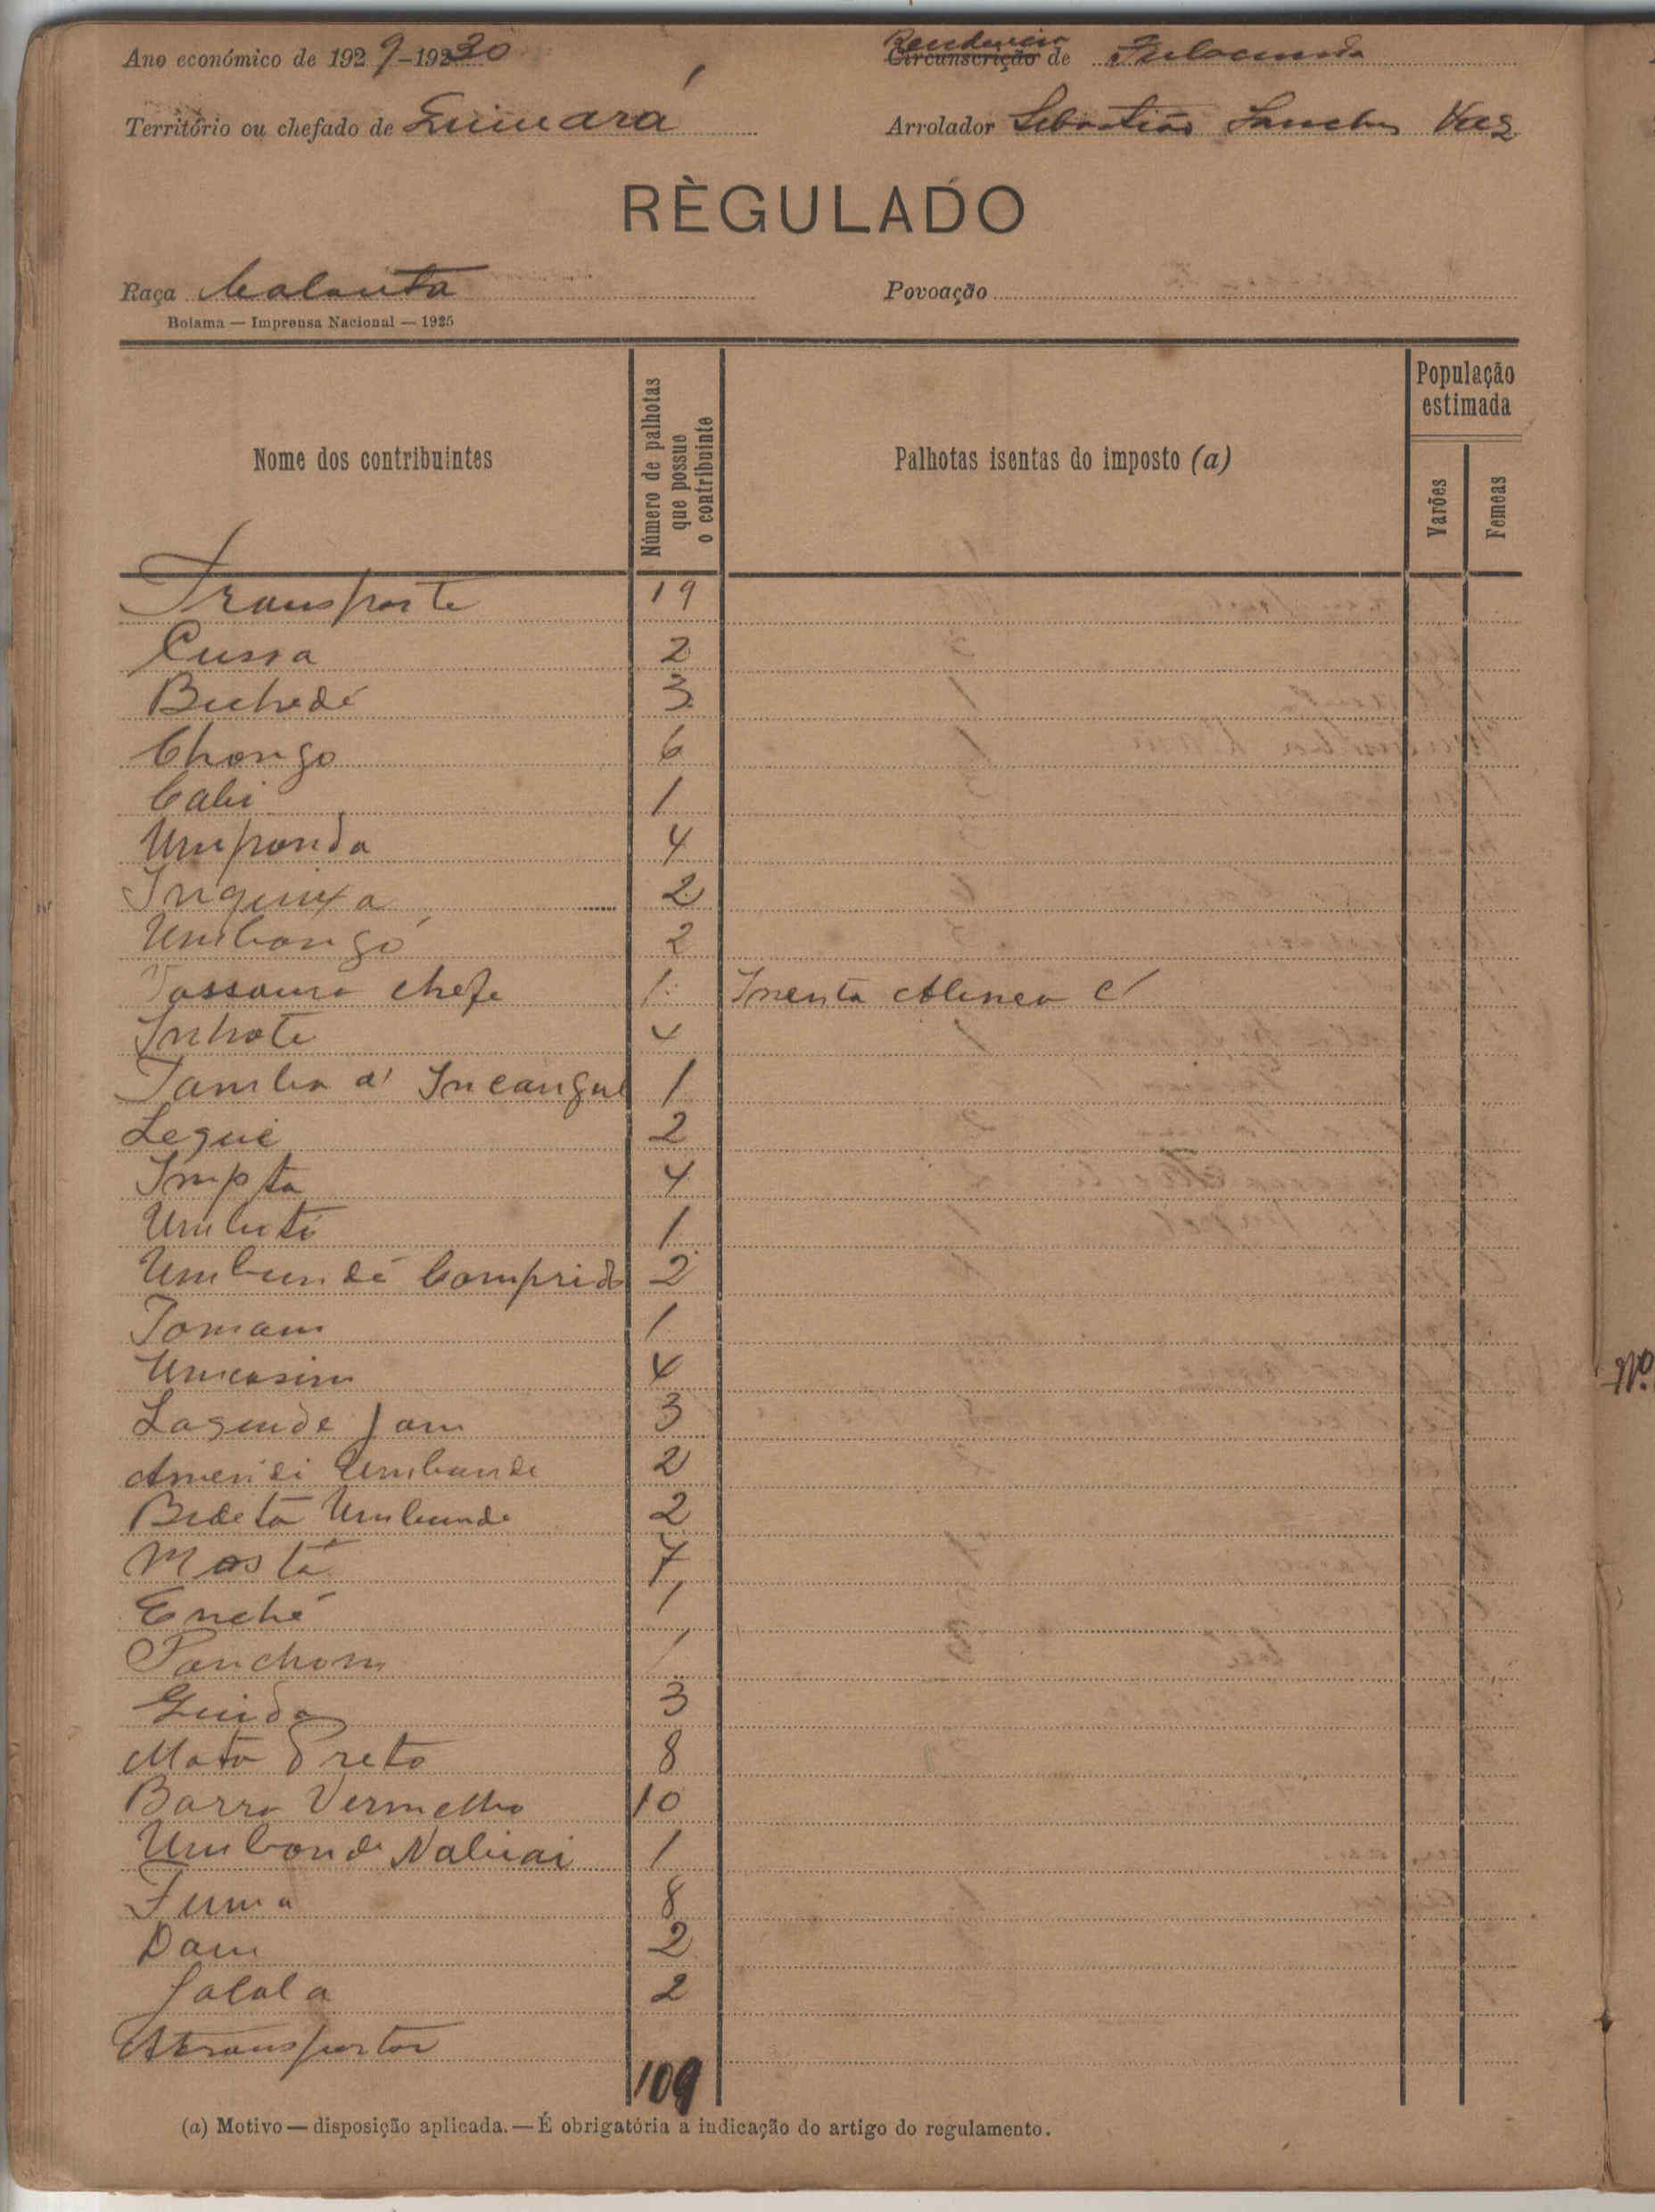 Ano económico de 1929-1930
Residencia
Circunscrição de Fulacunda
Território ou chefado de Guinará
Arrolador Sebastião Sanches Vaz
RÈGULADO
Raça Balanta
Povoação
Bolama — Imprensa Nacional — 1925
Nome dos contribuintes
Número de palhotas que possue o contribuinte
Palhotas isentas do imposto (a)
População estimada
Varões
Femeas
Transporte 19
Cussa 2
Buhedé 3
Chongo 6
Cabi 1
Umponda 4
Inquixa 2
Umbongó 2
Vassoura chefe 1 Inenta Alinea C
Inhote 4
Tamba d' Incangue 1
Legué 2
Impta 4
Umbuti 1
Umbundé Comprido 2
Tomam 1
Umcasim 4
Lagunde Jam 3
Amendi Umbunde 2
Bideta Umbunde 2
Mostá 7
Enché 1
Panchom 1
Guida 3
Mato Preto 8
Barro Vermelho 10
Umbonde Nabuai 1
Fuma 8
Dam 2
Jalala 2
A transportar 109
(a) Motivo — disposição aplicada. — É obrigatória a indicação do artigo do regulamento.